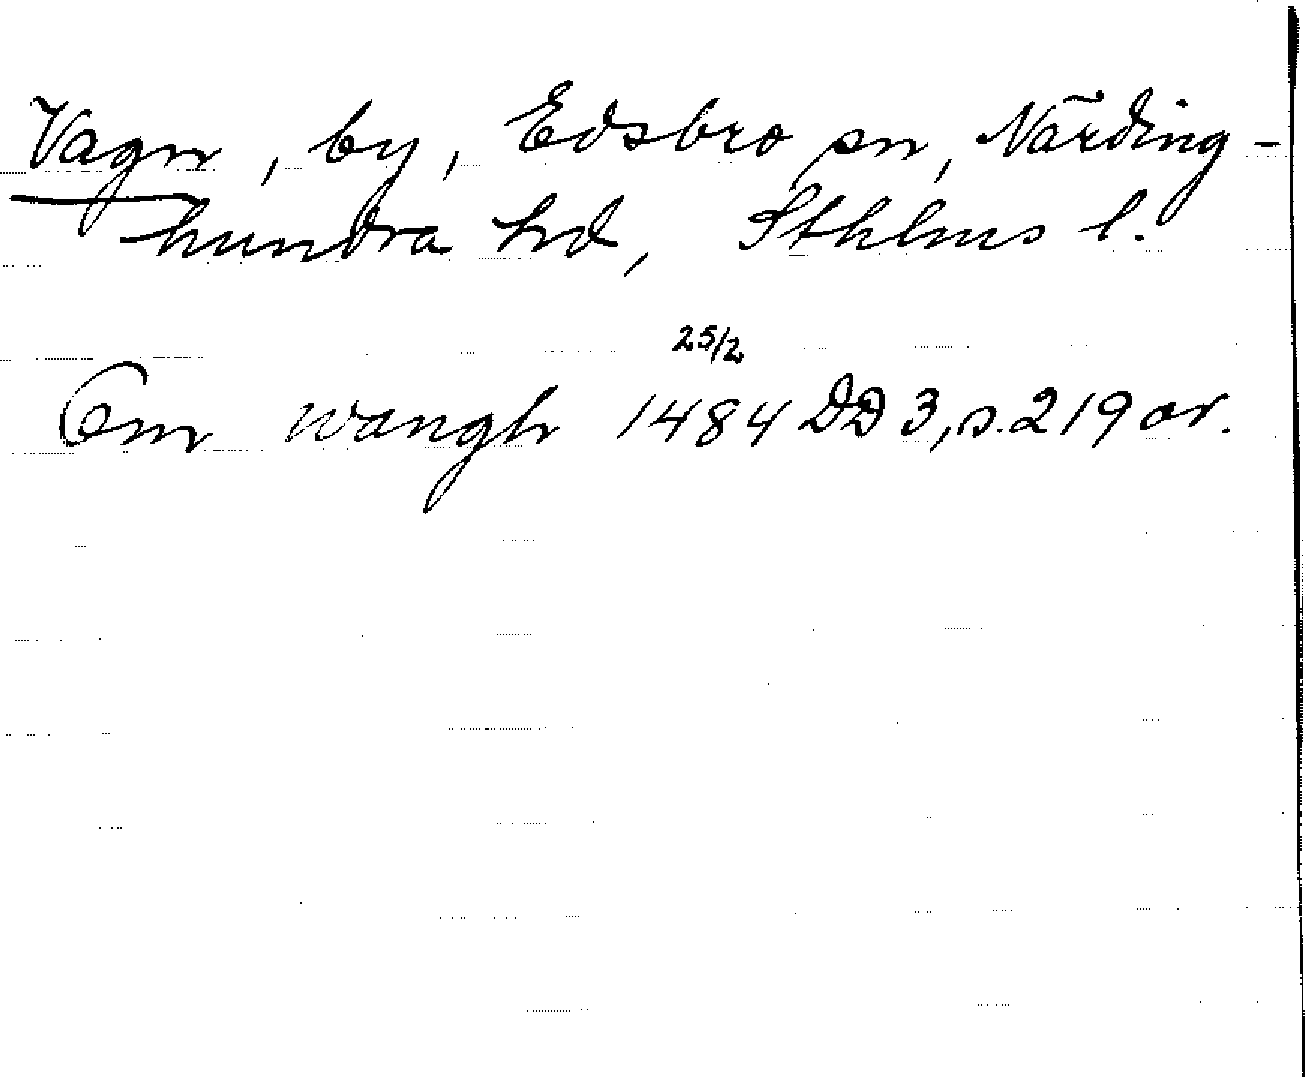 Vagn, by, Edsbro sn, Närding-
hundra hd, Sthlms l.
25/2
Om wangh 1484 DD 3, s. 219 or.